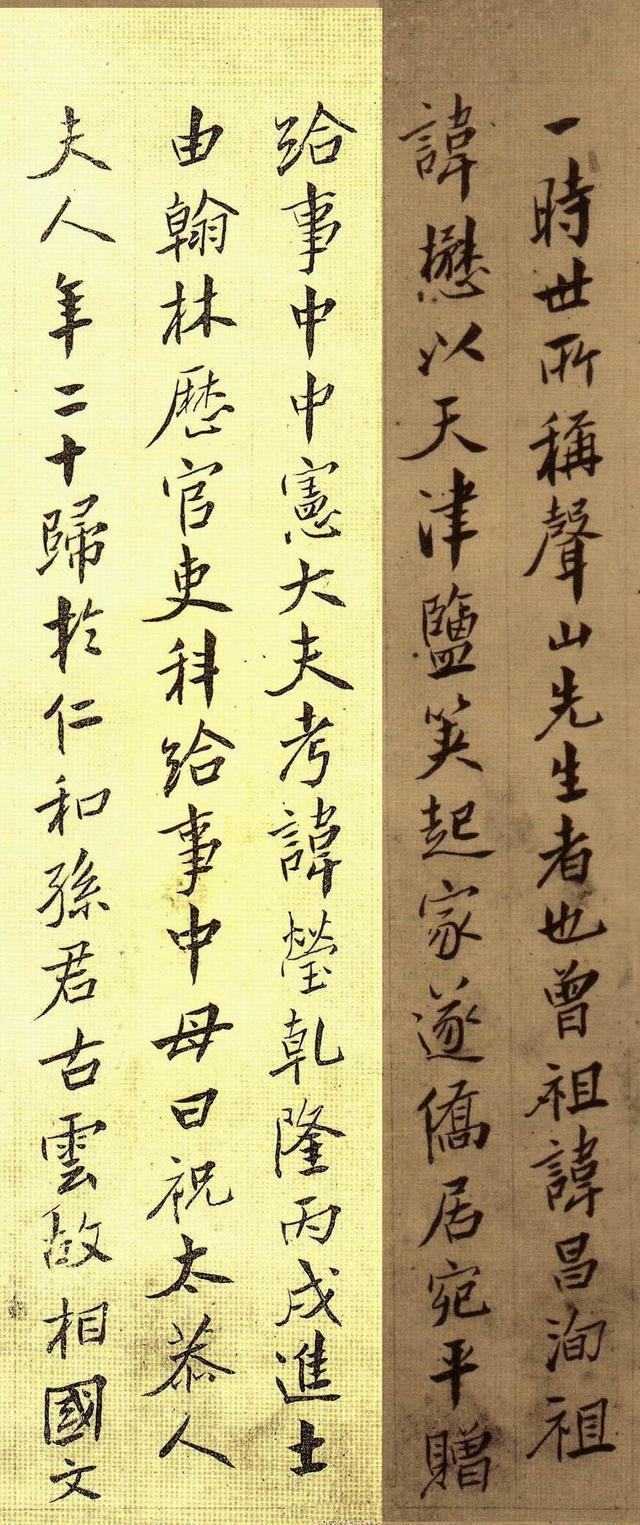 一時世所稱聲山先生者也曾祖諱昌洵祖
諱懋以天津鹽筴起家遂僑居宛平贈
給事中中憲大夫考諱瑩乾隆丙戌進士
由翰林歷官吏科給事中母曰祝太恭人
夫人年二十歸於仁和孫君古雲故相國文